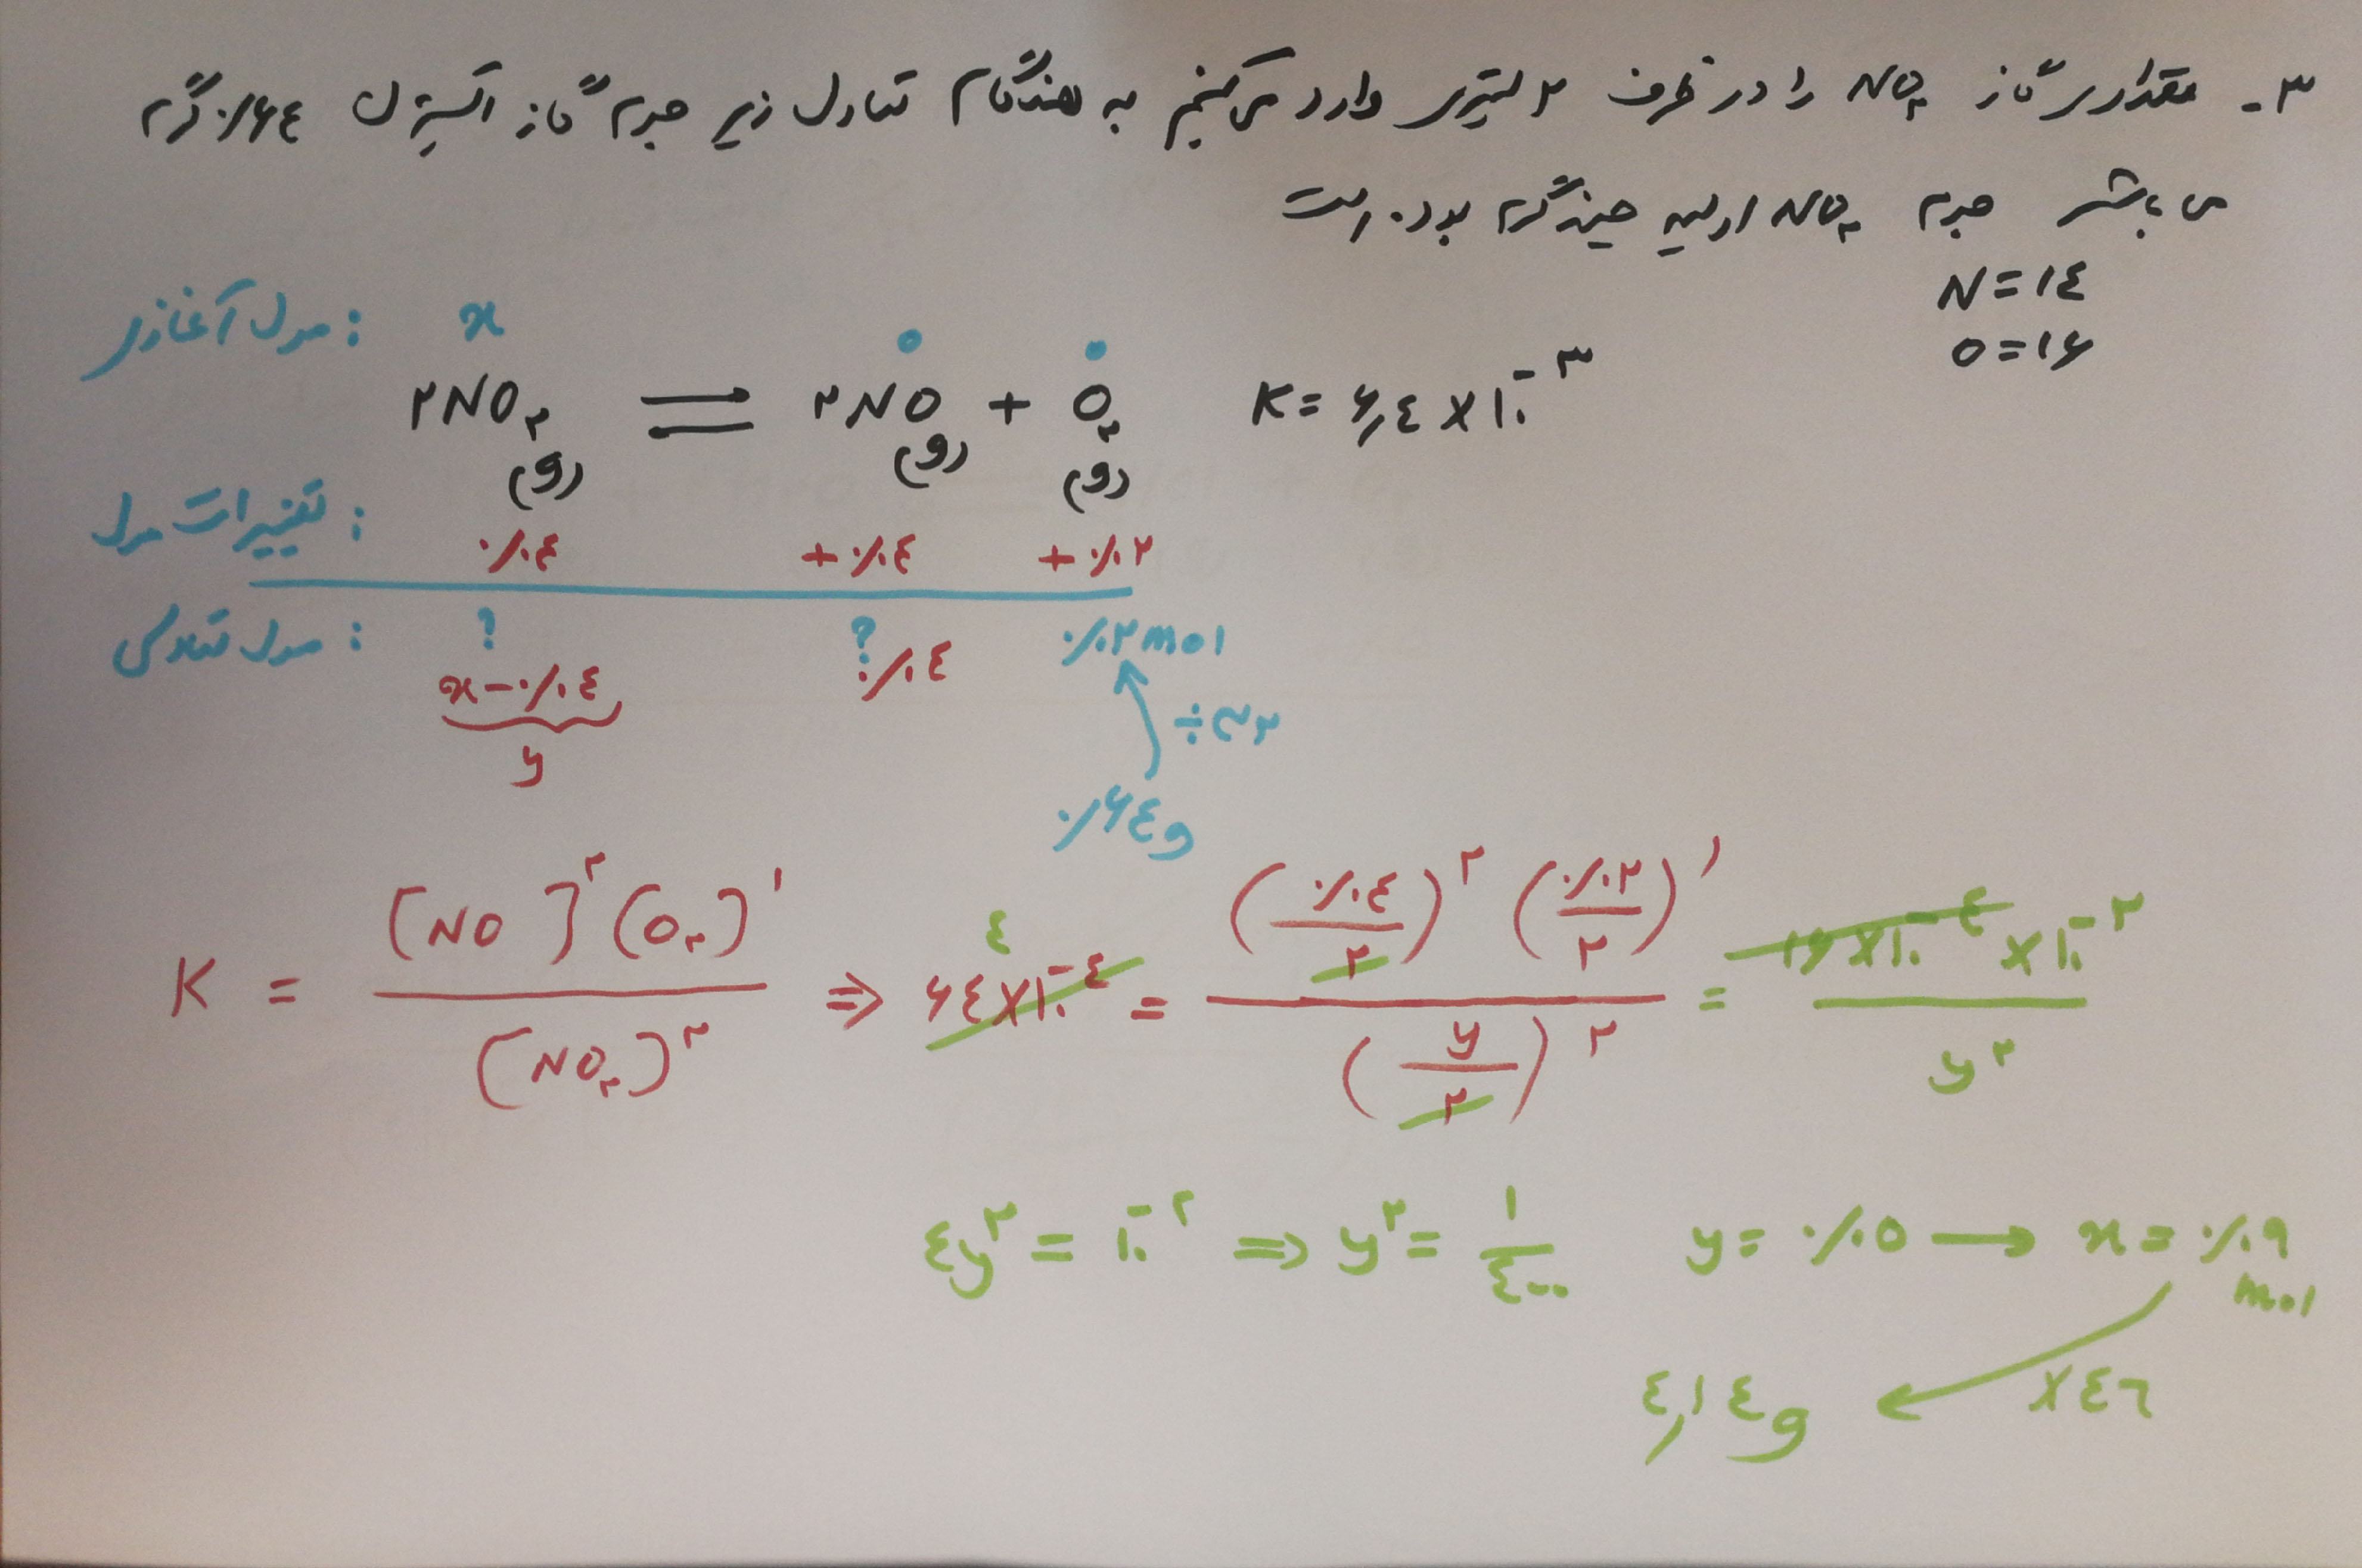 ۳- مقداری گاز NO₂ را در ظرف ۲ لیتری وارد می‌کنیم به هنگام تعادل زیر جرم گاز اکسیژن ۰/۶۴ گرم
می باشد جرم NO₂ اولیه چند گرم بوده است
N=۱٤
O=۱۶
مول آغازی : x ۰ ۰
۲NO₂(g) ⇌ ۲NO(g) + O₂(g) K= ۶,٤ x۱۰⁻۳
تغییرات مول : ۰/۰٤ +۰/۰٤ +۰/۰۲
مول تعادلی : ? ? ۰/۰۲mol
x-۰/۰٤ ۰/۰٤
÷۳۲
y
۰/۶٤g
K = [NO]² (O₂)¹ / (NO₂)² ⇒ ۶٤x۱۰⁻٤ ٤ = (۰/۰٤/۲)² (۰/۰۲/۲)¹ / (y/۲)² = ۱۶x۱۰⁻٤ x۱۰⁻۲ / y²
٤y² = ۱۰⁻² ⇒ y² = ۱/٤۰۰ y= ۰/۰۵ → x= ۰/۰۹ mol
x٤٦
٤,۱٤g